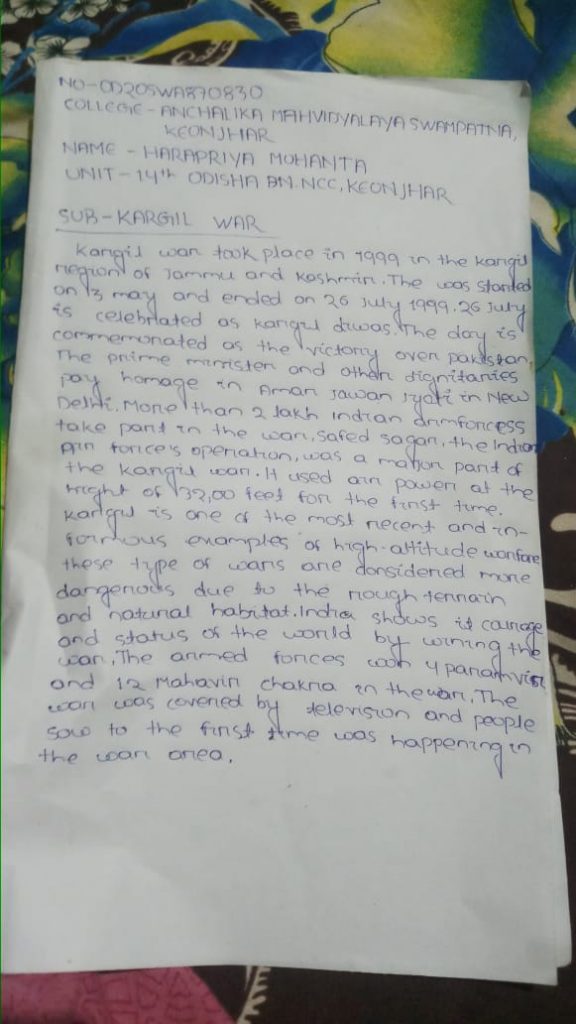 NO-OD20SWA870830
COLLEGE - ANCHALIKA MAHVIDYALAYA SWAMPATNA,
KEONJHAR
NAME - HARAPRIYA MOHANTA
UNIT - 14th ODISHA BN. NCC, KEONJHAR
SUB - KARGIL WAR
Kargil war took place in 1999 in the kargil
region of Jammu and Kashmir. The was started
on 13 may and ended on 26 July 1999. 26 July
is celebrated as kargil diwas. The day is
commemorated as the victory over pakistan.
The prime minister and other dignitaries
pay homage in Amar Jawan Jyoti in New
Delhi. More than 2 lakh Indian armforcess
take part in the war, Safed sagar, the Indian
Air force's operation, was a major part of
the kargil war. It used air power at the
hight of 32,00 feet for the first time.
Kargil is one of the most recent and in-
formous examples of high-altitude warfare
these type of wars are donsidered more
dangerous due to the rough terrain
and natural habitat. India shows it courage
and status of the world by wining the
war. The armed forces won 4 paramvir
and 12 Mahavir chakra in the war. The
war was covered by television and people
saw to the first time was happening in
the war area.